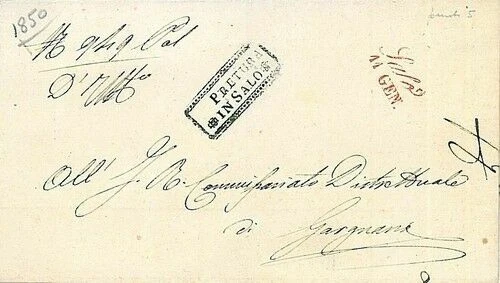 1850
N 9419 Pol
D'Uffo
PRETURA
IN SALO
Salò
11 GEN.
All' I. R. Commissariato Distrettuale
di Gargnano